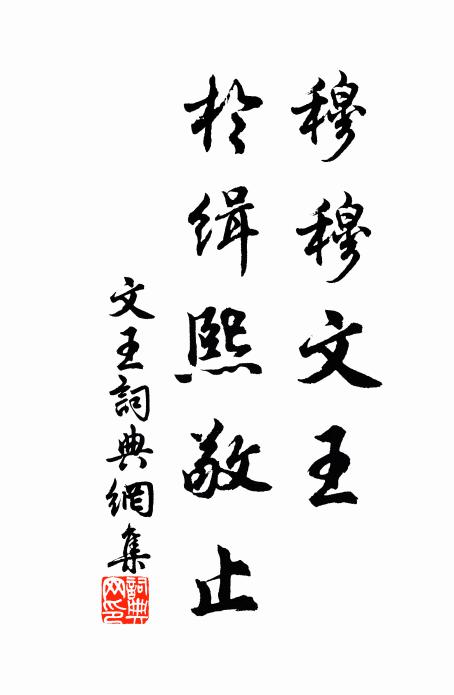 穆穆文王
於緝熙敬止
文王詞典網集
詞典網印